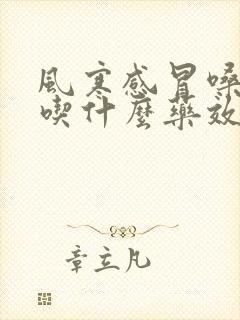 風寒感冒嗓
喫什麼藥效
章立凡